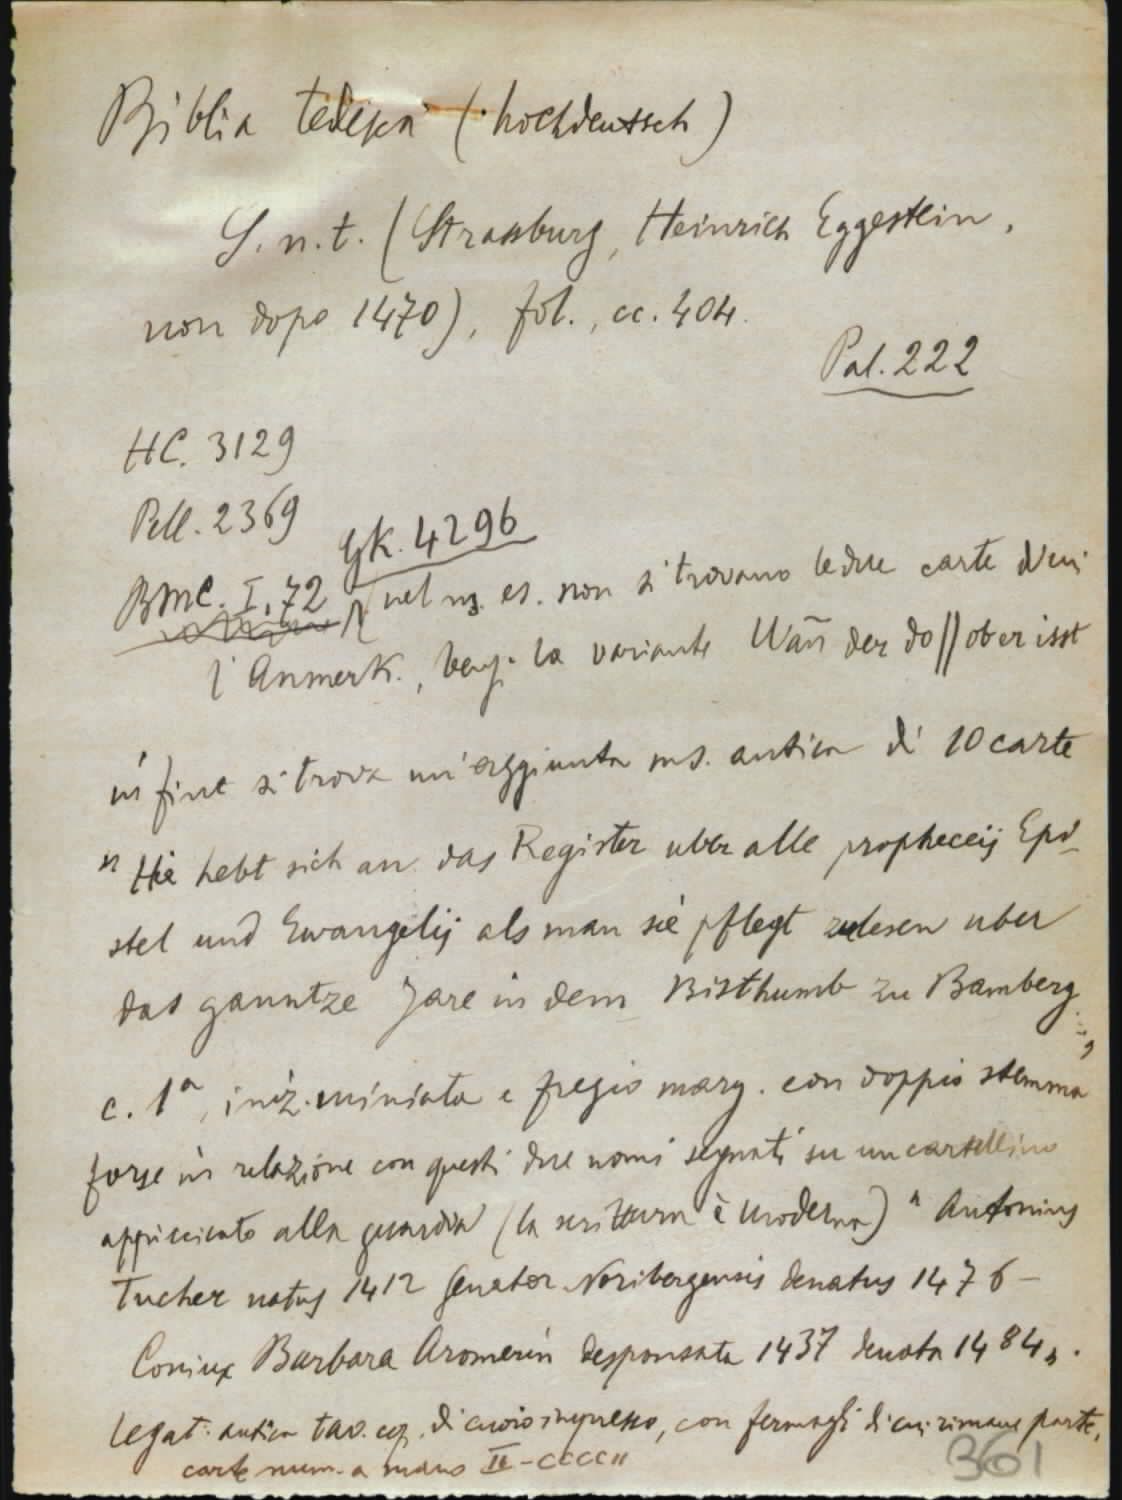 Biblia tedesca (hochdeutsch)
S. n. t. (Strassburg, Heinrich Eggestein,
non dopo 1470), fol., cc. 404.
Pal. 222
HC. 3129
Pell. 2369
GK. 4296
BMC. I, 72
nel ns. es. non si trovano le due carte di cui
l'Anmerk., bensì la variante Wañ der do || ober isst
in fine si trova un'aggiunta ms. antica di 10 carte
" Hie hebt sich an das Register uber alle propheceij Epi-
stel und Ewangelij als man sie pflegt zulesen uber
das ganntze Jare in dem Bisthumb zu Bamberg "
c. 1ª, iniz. miniata e fregio marg. con doppio stemma
forse in relazione con questi due nomi segnati su un cartellino
appiccicato alla guardia (la scrittura è moderna) " Antonius
Tucher natus 1412 Senator Noribergensis denatus 1476 –
Coniux Barbara Aromerin desponsata 1437 denata 1484 ".
legat. antica tav. cop. di cuoio impresso, con fermagli di cui rimane parte.
carte num. a mano II - CCCCII
361